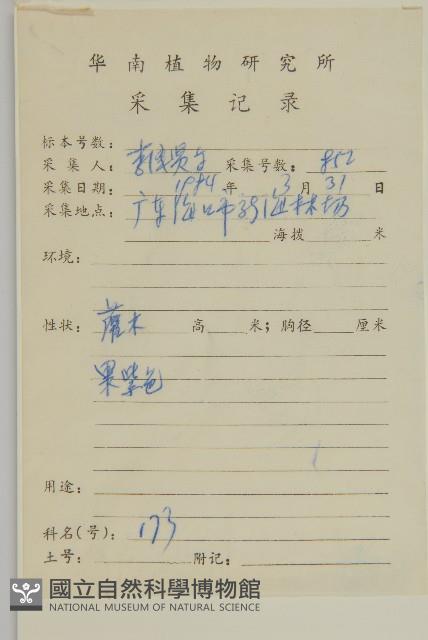 华南植物研究所
采集记录
标本号数：
采集人： 李泽贤 采集号数： 852
采集日期： 1984 年 3 月 31 日
采集地点： 广东海口市 林场
海拔 米
环境：
性状： 灌木 高 米；胸径 厘米
果紫色
用途：
科名(号)： 173
土号： 附记：
國立自然科學博物館
NATIONAL MUSEUM OF NATURAL SCIENCE